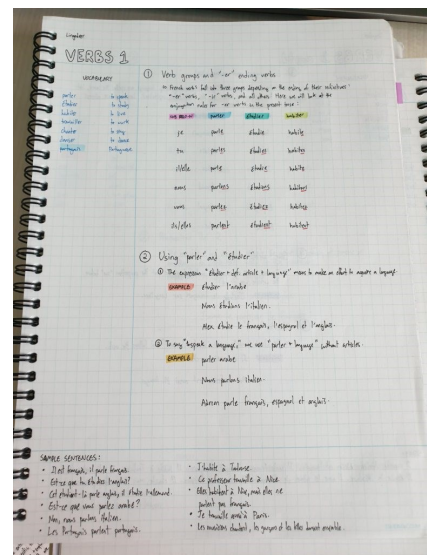 Lingodeer
VERBS 1
VOCABULARY
parler to speak
étudier to study
habiter to live
travailler to work
chanter to sing
danser to dance
portugais Portuguese
① Verb groups and "-er" ending verbs
French verbs fall into three groups depending on the ending of their infinitives:
"-er" verbs, "-ir" verbs, and all others. Here we will look at the
conjugation rules for -er verbs in the present tense:
parler étudier habiter
je parle étudie habite
tu parles étudies habites
il/elle parle étudie habite
nous parlons étudions habitons
vous parlez étudiez habitez
ils/elles parlent étudient habitent
② Using "parler" and "étudier"
① The expression "étudier + def. article + language" means to make an effort to acquire a language.
EXAMPLE étudier l'arabe
Nous étudions l'italien.
Alex étudie le français, l'espagnol et l'anglais.
② To say "to speak a language," we use "parler + language" without articles.
EXAMPLE parler arabe
Nous parlons italien.
parle français, espagnol et anglais.
SAMPLE SENTENCES:
• Il est français, il parle français.
• Est-ce que tu étudies l'anglais?
• Cet étudiant-là parle anglais, il étudie l'allemand.
• Est-ce que vous parlez arabe?
• Non, nous parlons italien.
• Les Portugais parlent portugais.
• J'habite à Toulouse.
• Ce professeur travaille à Nice.
• Elles habitent à Nice, mais elles ne
parlent pas français.
• Je travaille aussi à Paris.
• Les musiciens chantent, les garçons et les filles dansent ensemble.